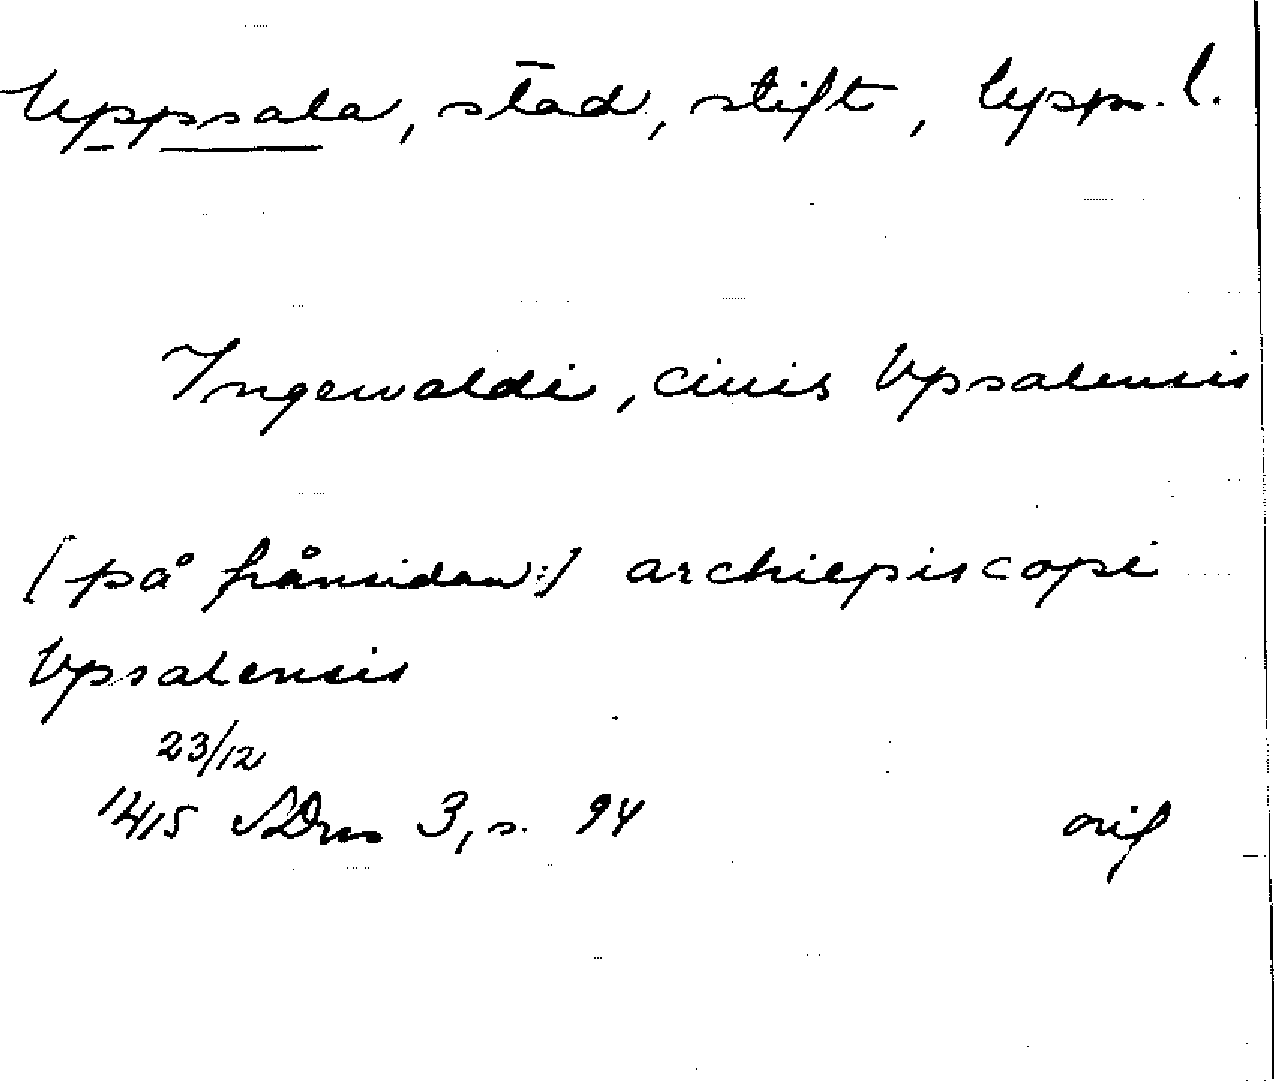 Uppsala, stad, stift, Upps. l.
Ingewaldi, ciuis Vpsalensis
(på frånsidan:) archiepiscopi
Vpsalensis
23/12
1415 SDns 3, s. 94
orig